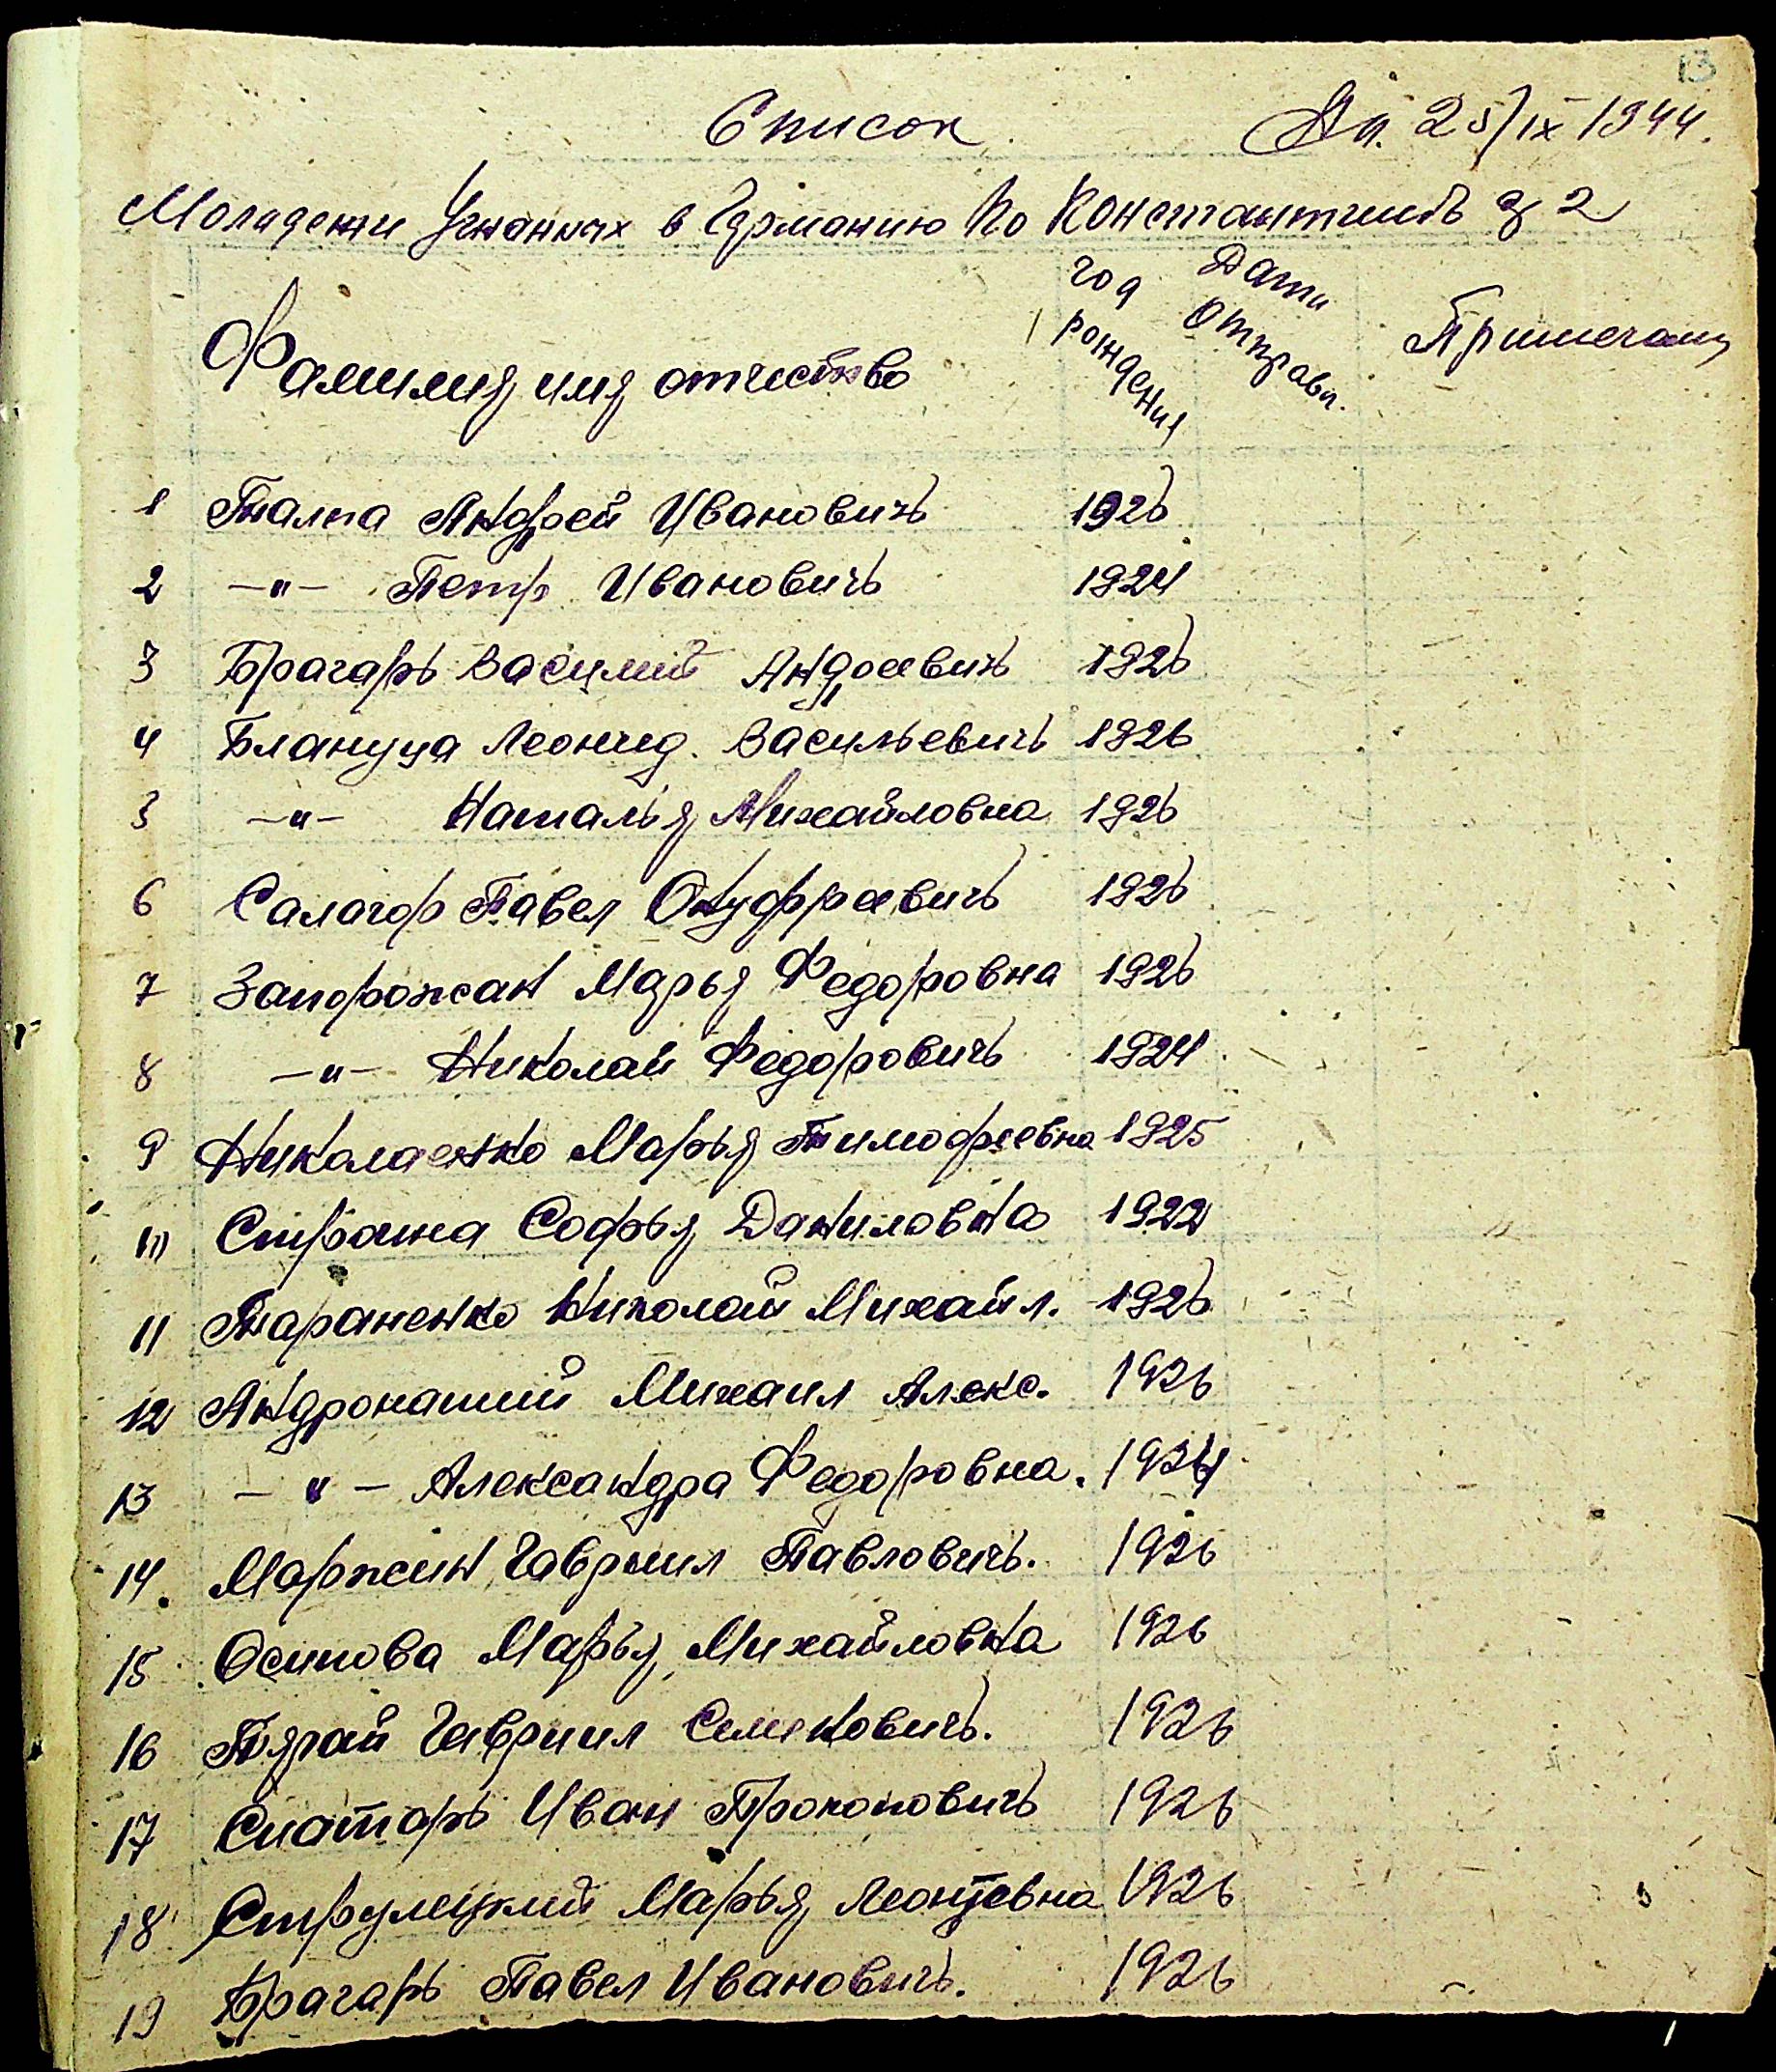 13
Список На 25/IX 1944.
Моладежи Угнанных в Германию По Константиновъ 2
Фамилия имя отчество год рождения Дата отправл. Примечани
1 Талпа Андрей Ивановичъ 1926
2 —"— Петр Ивановичъ 1924
3 Брагарь Василий Андреевичъ 1926
4 Блануца Леонид. Васильевичъ 1926
5 —"— Наталья Михайловна 1926
6 Салагор Павел Онуфреевичъ 1926
7 Запорожан Марья Федоровна 1926
8 —"— Николай Федоровичъ 1924
9 Николаенко Марья Тимофеевна 1925
10 Страина Софья Даниловна 1922
11 Тараненко Николай Михайл. 1926
12 Андронаший Михаил Алекс. 1926
13 — " — Александра Федоровна. 1924
14. Маржин Гавриил Павловичъ. 1926
15 Осипова Марья Михайловна 1926
16 Пярай Гавриил Семеновичъ. 1926
17 Снатарь Иван Прокоповичъ 1926
18 Струлецкий Марья Леонтевна 1926
19 Брагарь Павел Ивановичъ. 1926